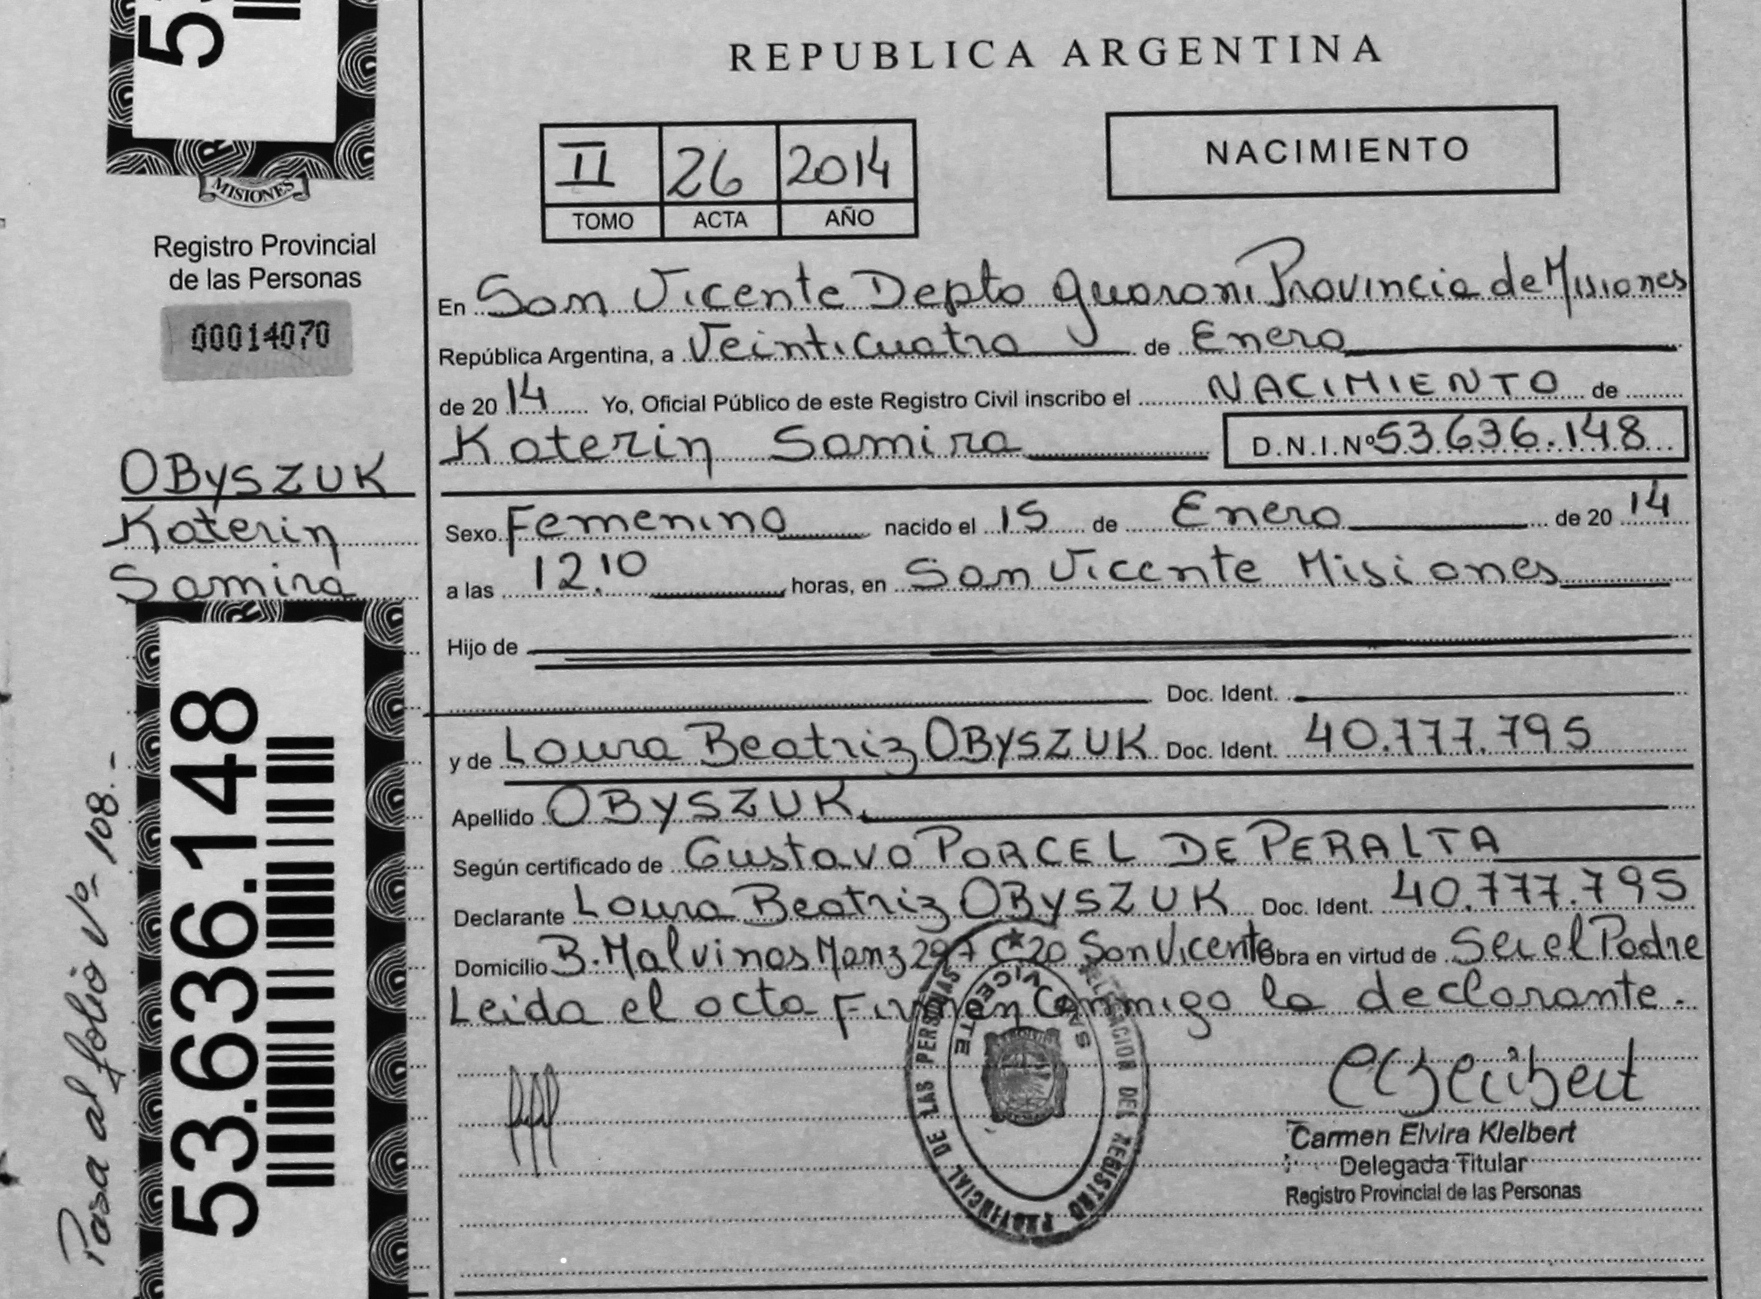 REPUBLICA ARGENTINA
NACIMIENTO
II 26 2014
TOMO ACTA AÑO
MISIONES
Registro Provincial
de las Personas
00014070
OBYSZUK
Katerin
Samira
53.636.148
Pasa al folio Nº 108.-
En San Vicente Depto Guarani Provincia de Misiones
República Argentina, a Veinticuatro de Enero
de 2014 Yo, Oficial Público de este Registro Civil inscribo el NACIMIENTO de
Katerin Samira D.N.I.Nº 53.636.148
Sexo Femenino nacido el 15 de Enero de 2014
a las 12.10 horas, en San Vicente Misiones
Hijo de
Doc. Ident.
y de Laura Beatriz OBYSZUK Doc. Ident. 40.777.795
Apellido OBYSZUK
Según certificado de Gustavo PORCEL DE PERALTA
Declarante Laura Beatriz OBYSZUK Doc. Ident. 40.777.795
Domicilio B. Malvinas Manz 297 C 20 San Vicente Obra en virtud de Ser el Padre
Leida el acta Firman Conmigo la declarante.
DELEGACION DEL REGISTRO PROVINCIAL DE LAS PERSONAS
SAN VICENTE
Carmen Elvira Kleibert
Delegada Titular
Registro Provincial de las Personas